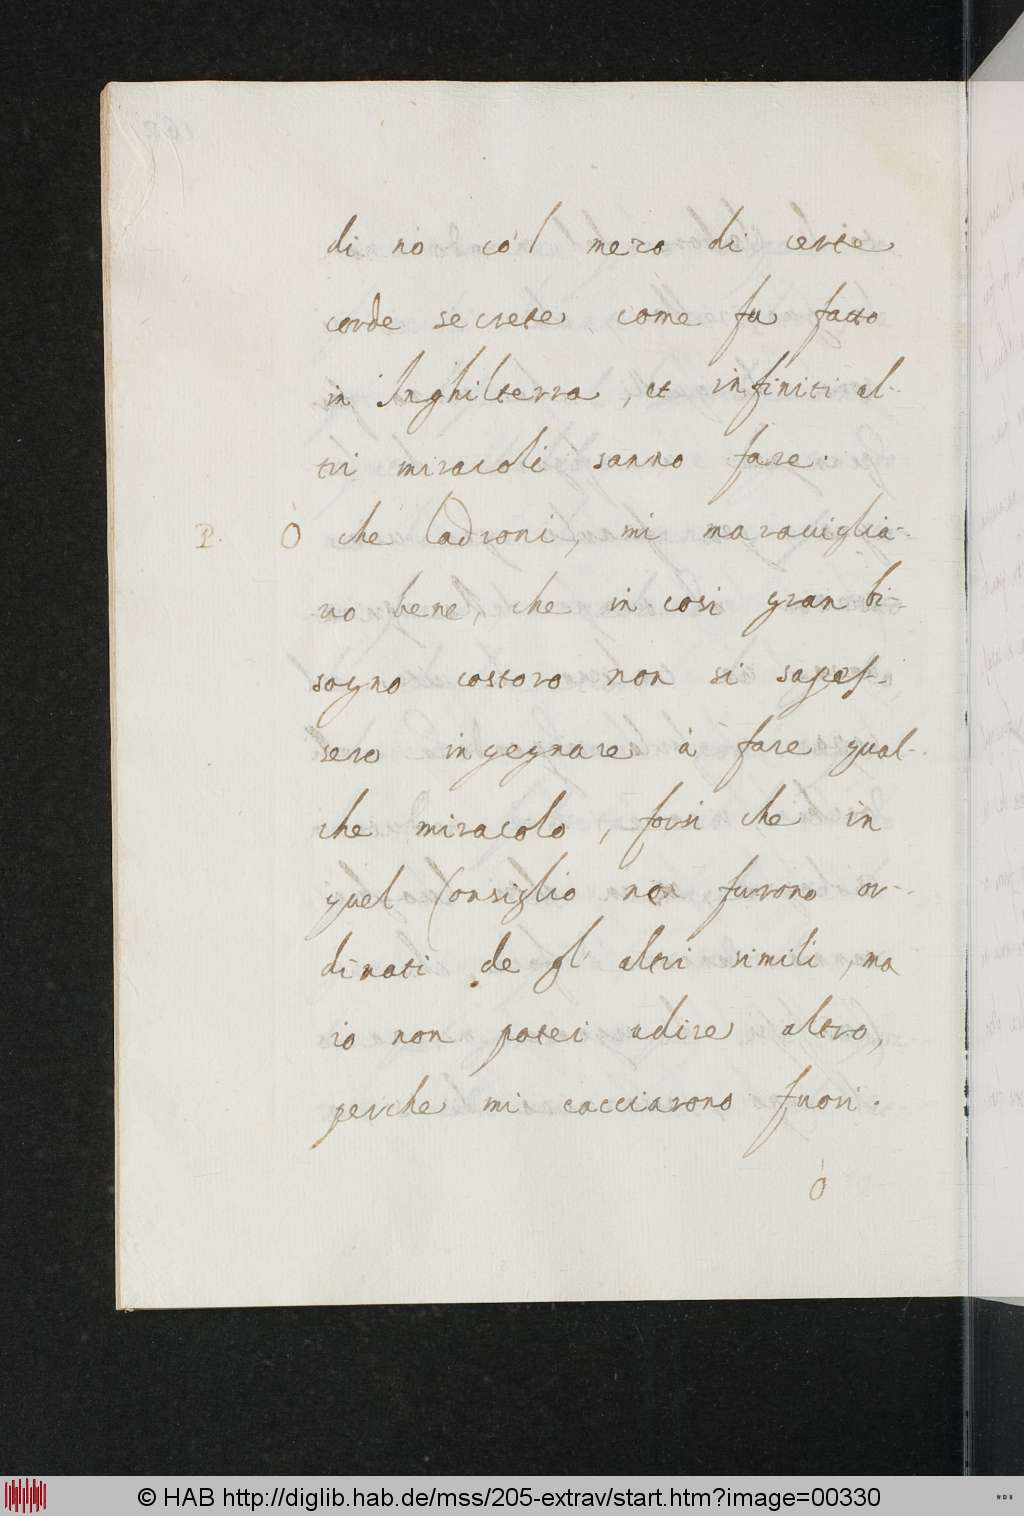 di nò co'l mezo di certe
corde secrete come fu fatto
in Inghilterra, et infiniti al-
tri miracoli sanno fare.
P. Ò che ladroni, mi marauiglia-
uo bene, che in cosi gran bi-
sogno costoro non si sapes-
sero ingegnare à fare qual-
che miracolo, forsi che in
quel Consiglio non furono or-
dinati de gl' altri simili, ma
io non potei udire altro,
perche mi cacciarono fuori.
Ò
© HAB http://diglib.hab.de/mss/205-extrav/start.htm?image=00330